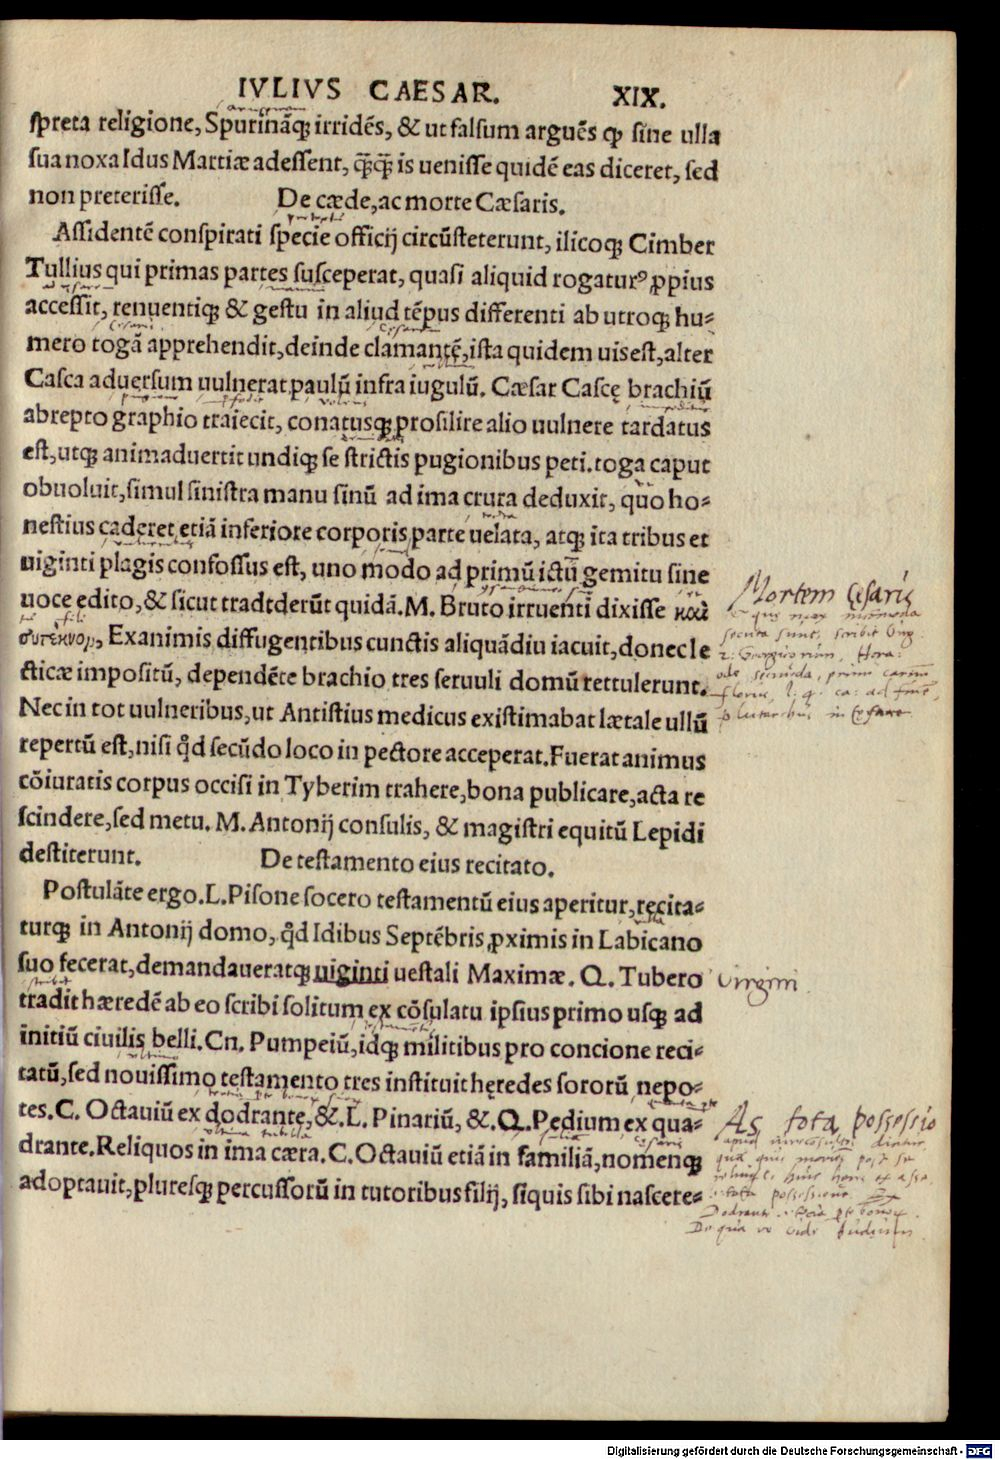 IVLIVS CAESAR. XIX.
spreta religione, Spurināq; irridēs, & ut falsum arguēs ꝙ sine ulla
sua noxa Idus Martiæ adessent, q̄q̄ is uenisse quidē eas diceret, sed
non preterisse. De cæde, ac morte Cæsaris.
Assidentē conspirati specie officij circūsteterunt, ilicoq; Cimber
Tullius qui primas partes susceperat, quasi aliquid rogaturꝰ ꝓpius
accessit, renuentiq; & gestu in aliud tēpus differenti ab utroq; hu-
mero togā apprehendit, deinde clamantē, ista quidem uis est, alter
Casca aduersum uulnerat paulū infra iugulū. Cæsar Cascę brachiū
abrepto graphio traiecit, conatusq; prosilire alio uulnere tardatus
est, utq; animaduertit undiq; se strictis pugionibus peti. toga caput
obuoluit, simul sinistra manu sinū ad ima crura deduxit, quo ho-
nestius caderet etiā inferiore corporis parte uelata, atq; ita tribus et
uiginti plagis confossus est, uno modo ad primū ictū gemitu sine
uoce edito, & sicut tradtderūt quidā. M. Bruto irruenti dixisse καὶ
συτεκνον, Exanimis diffugentibus cunctis aliquādiu iacuit, donec le
cticæ impositū, dependēte brachio tres seruuli domū rettulerunt.
Nec in tot uulneribus, ut Antistius medicus existimabat lætale ullū
repertū est, nisi qd̄ secūdo loco in pectore acceperat. Fuerat animus
cōiuratis corpus occisi in Tyberim trahere, bona publicare, acta re
scindere, sed metu. M. Antonij consulis, & magistri equitū Lepidi
destiterunt. De testamento eius recitato.
Postulāte ergo. L. Pisone socero testamentū eius aperitur, recita-
turq; in Antonij domo, qd̄ Idibus Septēbris ꝓximis in Labicano
suo fecerat, demandaueratq; uiginti uestali Maximæ. Q. Tubero
tradit hæredē ab eo scribi solitum ex cōsulatu ipsius primo usq; ad
initiū ciuilis belli. Cn. Pumpeiū, idq; militibus pro concione reci-
tatū, sed nouissimo testamento tres instituit hęredes sororū nepo-
tes. C. Octauiū ex dodrante, & L. Pinariū, & Q. Pedium ex qua-
drante. Reliquos in ima cæra. C. Octauiū etiā in familiā, nomenq;
adoptauit, pluresq; percussorū in tutoribus filij, siquis sibi nascere-
Mortem Cęsaris
secuta sunt, scribit Virg.
Virgini
As tota possessio
Digitalisierung gefördert durch die Deutsche Forschungsgemeinschaft - DFG